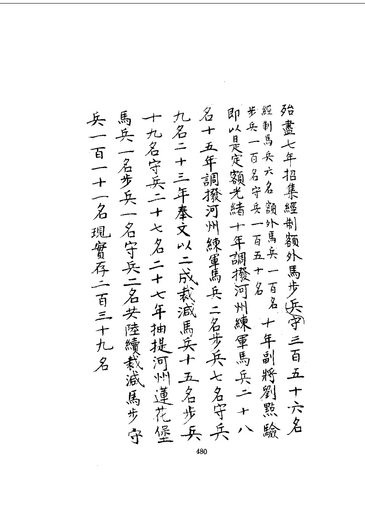 殆盡七年招集經制額外馬步兵守三百五十六名
經制馬兵六名額外馬兵一百名
步兵一百名守兵一百五十名
十年副將劉點驗
即以是定額光緒十年調撥河州練軍馬兵二十八
名十五年調撥河州練軍馬兵二名步兵七名守兵
九名二十三年奉文以二成裁減馬兵十五名步兵
十九名守兵二十七名二十七年抽提河州蓮花堡
馬兵一名步兵一名守兵二名共陸續裁減馬步守
兵一百一十一名現實存二百三十九名
480